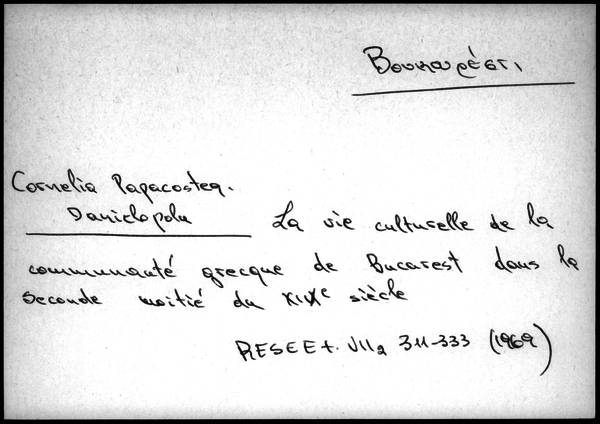 Βουκουρέστι
Cornelia Papacostea.
Danielopolu La vie culturelle de la
communauté grecque de Bucarest dans la
seconde moitié du XIXe siècle
RESEE t. VII2 311-333 (1969)